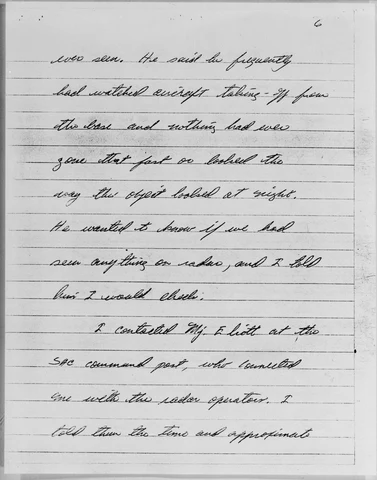 6
was seen. He said he frequently
had watched aircraft taking-off from
the base and nothing had ever
gone that fast or looked the
way the object looked at night.
He wanted to know if we had
seen anything on radar, and I told
him I would check.
I contacted Mj. Eliott at the
SAC command post, who connected
me with the radar operators. I
told them the time and approximate